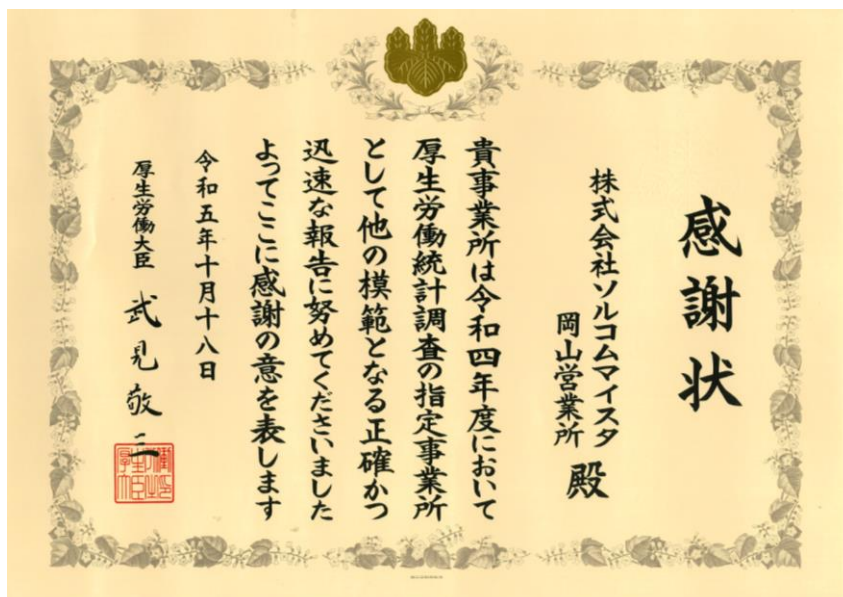 感謝状
株式会社ソルコムマイスタ
岡山営業所 殿
貴事業所は令和四年度において
厚生労働統計調査の指定事業所
として他の模範となる正確かつ
迅速な報告に努めてくださいました
よってここに感謝の意を表します
令和五年十月十八日
厚生労働大臣 武見敬三